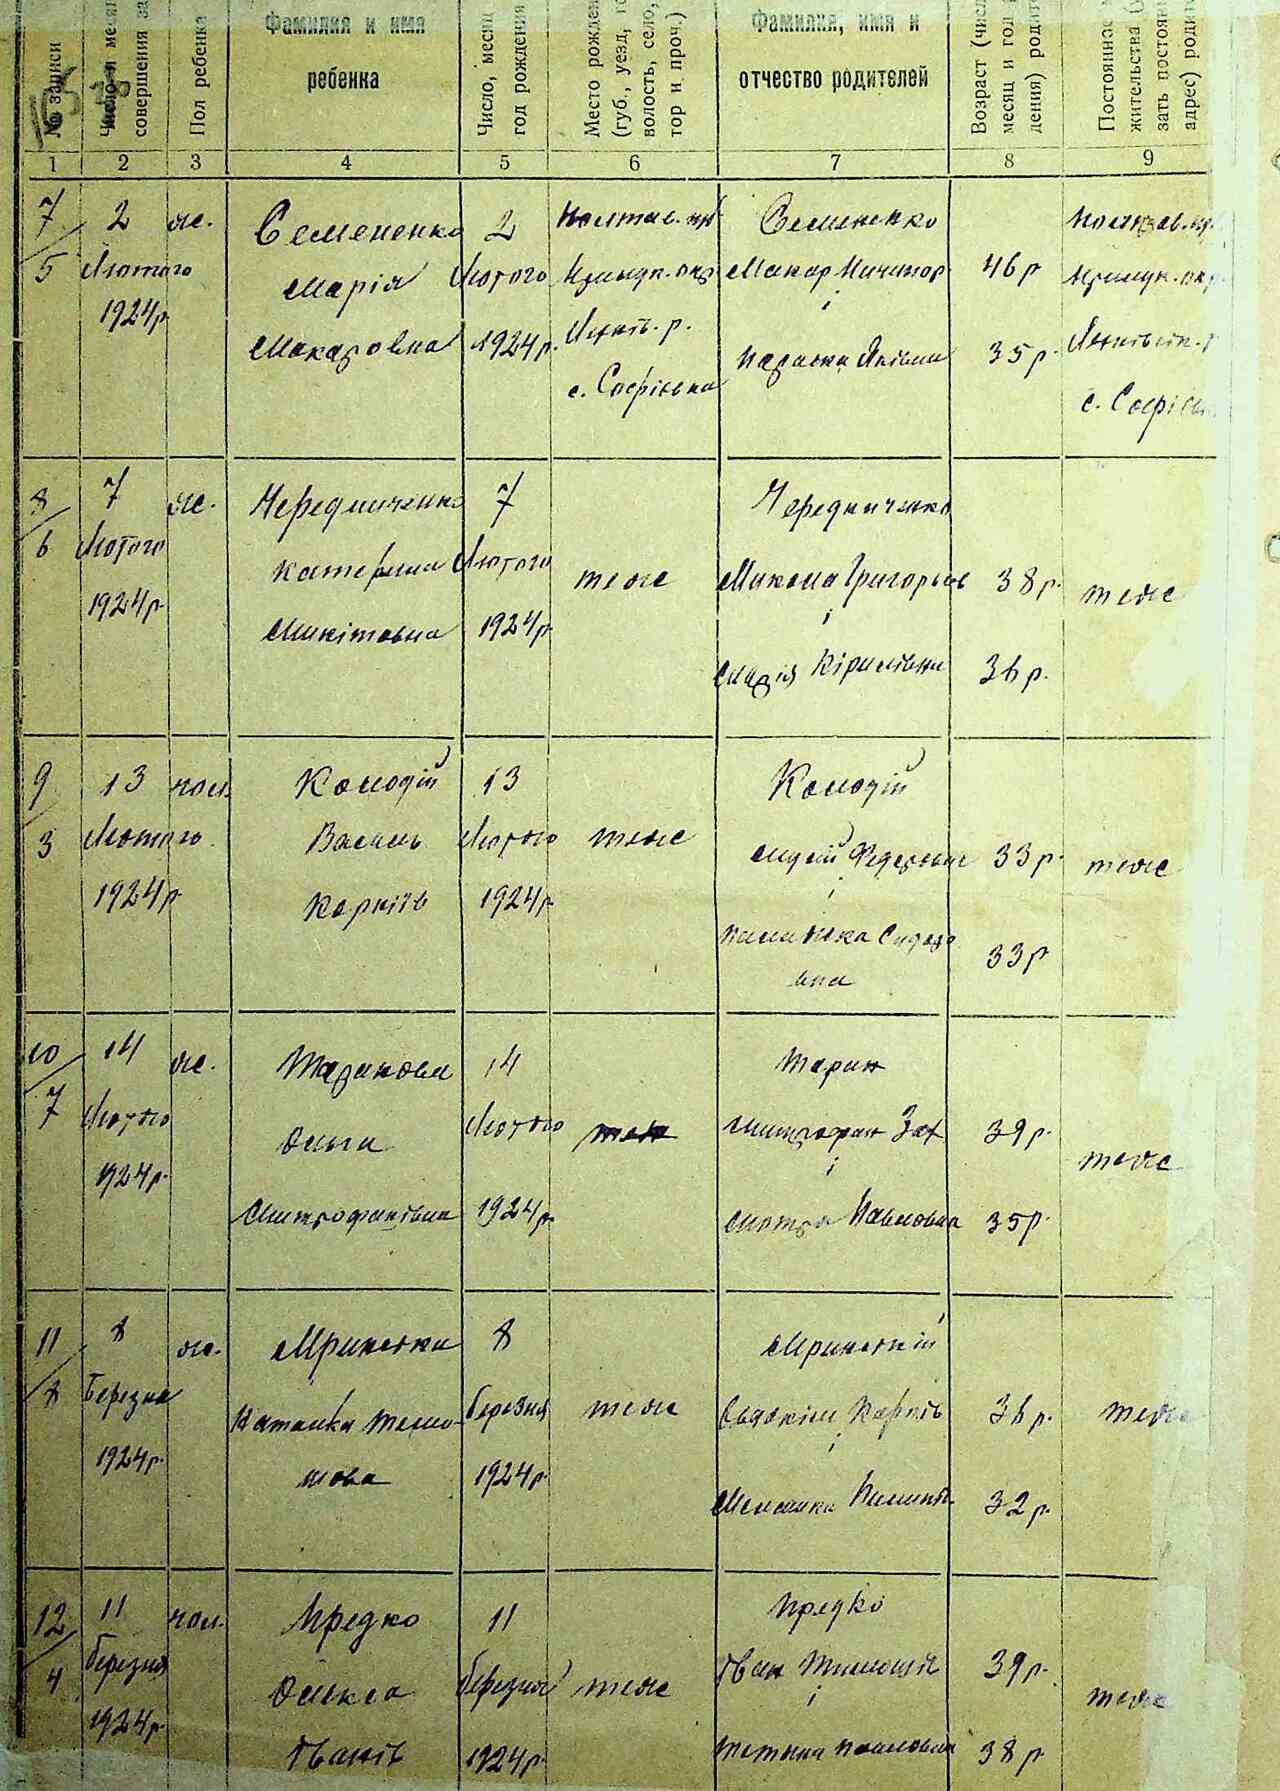 № записи
Число и меся
совершения за
Пол ребенка
Фамилия и имя
ребенка
Число, месяц
год рождения
Место рожден
(губ., уезд, го
волость, село,
тор и проч.)
Фамилия, имя и
отчество родителей
Возраст (чис
месяц и год р
дения) родит
Постоянное м
жительства (
зать постоян
адрес) родите
1 2 3 4 5 6 7 8 9
7/5
2
Лютого
1924 р.
ж.
Семененко
Марія
Макаровна
2
Лютого
1924 р.
Полтав. губ.
Прилук. окр.
р.
с. Софіївка
Семененко
Макар Ничипор
і
Параска Яківна
46 р.
35 р.
Полтав.
Прилук. окр.
с. Софіїв
8/6
7
Лютого
1924 р.
ж.
Чередниченко
Катерина
Микітовна
7
Лютого
1924 р.
теж
Чередниченко
Микола Григорьев
і
Марія Кірилівна
38 р.
36 р.
теж
9/3
13
Лютого
1924 р.
чол.
Колодій
Василь
13
Лютого
1924 р.
теж
Колодій
Федорович
і
Сидоро
вна
33 р.
33 р.
теж
10/7
14
Лютого
1924 р.
ж.
Таранова
Ольга
Митрофанівна
14
Лютого
1924 р.
теж
Таран
Митрофан Зах
і
Мотря Павловна
39 р.
35 р.
теж
11/8
8
Березня
1924 р.
ж.
Мринска
Наталка
8
березня
1924 р.
теж
Мринский
Евдокім Карпів
і
Меланка
36 р.
32 р.
теж
12/4
11
березня
1924 р.
чол.
Предко
Олекса
Іванів
11
березня
1924 р.
теж
Предко
Іван
і
Тетяна Павловна
39 р.
38 р.
теж